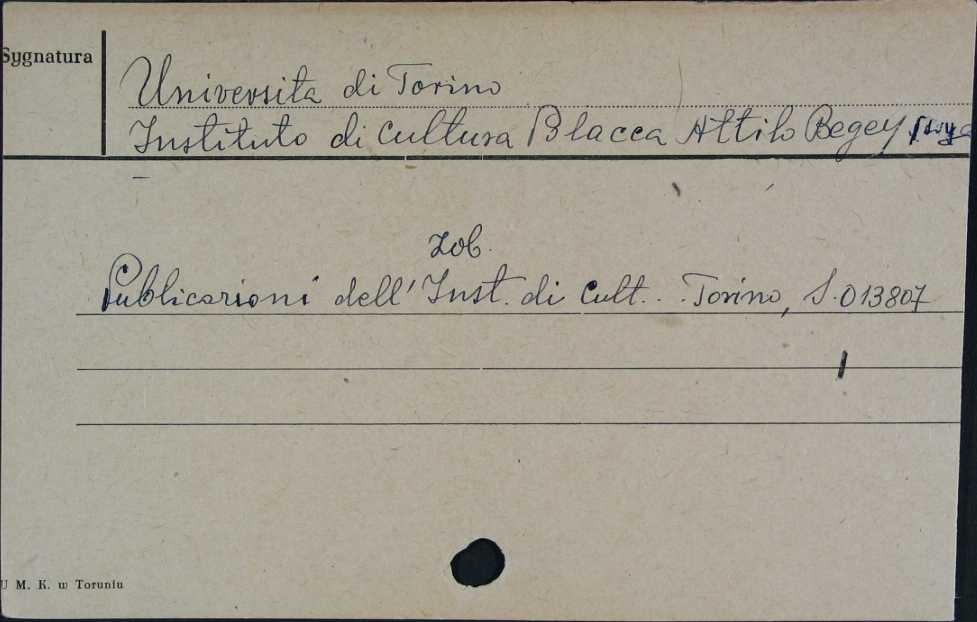 Sygnatura
Universita di Torino
Instituto di Cultura Blacca Attilo Begey
Zob.
Publicazioni dell' Inst. di Cult. . Torino, S. 013807
U M. K. w Toruniu